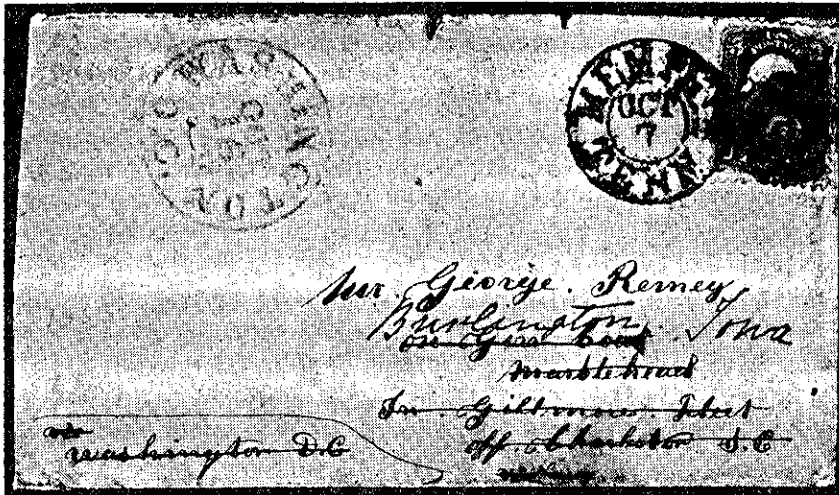 WASHINGTON D.C.
MEMPHIS TENN.
OCT
7
Mr. George. Remey
Burlington. Iowa
on Gun boat
Marblehead
In. Gillmore. fleet
off. Charleston S.C
via
Washington D.C